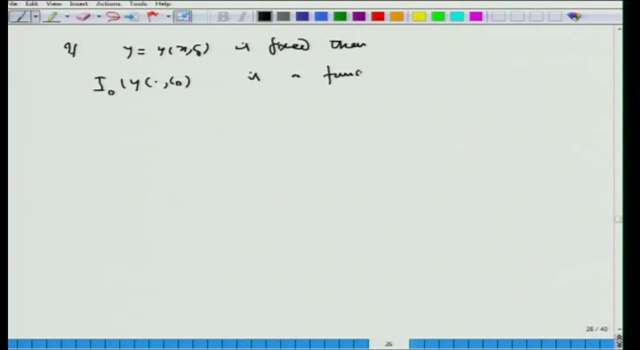 File Edit View Insert Actions Tools Help
If y = y(x, s) is fixed then
I₀(y(·, s)) is a func
26 / 40
26